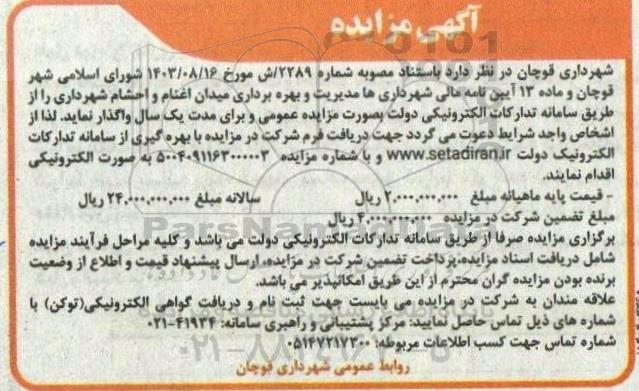 آگهی مزایده
شهرداری قوچان در نظر دارد باستناد مصوبه شماره ۲۲۸۹/ش مورخ ۱۴۰۳/۰۸/۱۶ شورای اسلامی شهر
قوچان و ماده ۱۳ آیین نامه مالی شهرداری ها مدیریت و بهره برداری میدان اغنام و احشام شهرداری را از
طریق سامانه تدارکات الکترونیکی دولت بصورت مزایده عمومی و برای مدت یک سال واگذار نماید. لذا از
اشخاص واجد شرایط دعوت می گردد جهت دریافت فرم شرکت در مزایده با بهره گیری از سامانه تدارکات
الکترونیک دولت www.setadiran.ir و با شماره مزایده ۵۰۰۴۰۹۱۱۶۳۰۰۰۰۰۳ به صورت الکترونیکی
اقدام نمایند.
- قیمت پایه ماهیانه مبلغ ۲,۰۰۰,۰۰۰,۰۰۰ ریال سالانه مبلغ ۲۴,۰۰۰,۰۰۰,۰۰۰ ریال
مبلغ تضمین شرکت در مزایده ۴,۰۰۰,۰۰۰,۰۰۰ ریال
برگزاری مزایده صرفا از طریق سامانه تدارکات الکترونیکی دولت می باشد و کلیه مراحل فرآیند مزایده
شامل دریافت اسناد مزایده، پرداخت تضمین شرکت در مزایده، ارسال پیشنهاد قیمت و اطلاع از وضعیت
برنده بودن مزایده گران محترم از این طریق امکانپذیر می باشد.
علاقه مندان به شرکت در مزایده می بایست جهت ثبت نام و دریافت گواهی الکترونیکی(توکن) با
شماره های ذیل تماس حاصل نمایید: مرکز پشتیبانی و راهبری سامانه: ۴۱۹۳۴-۰۲۱
شماره تماس جهت کسب اطلاعات مربوطه: ۰۵۱۴۷۲۱۷۳۰۰
روابط عمومی شهرداری قوچان